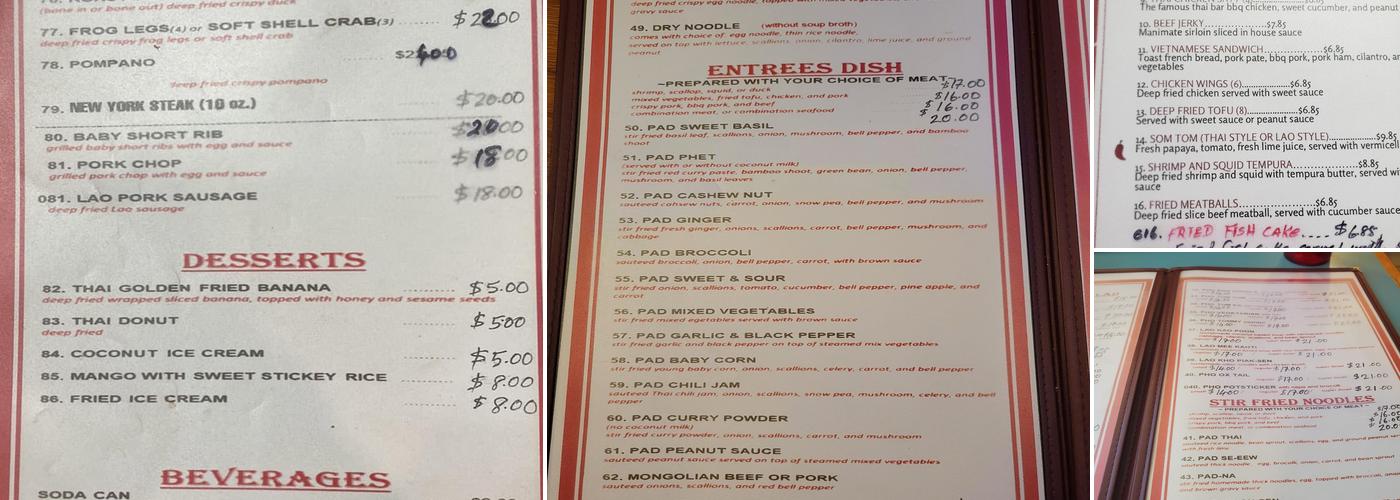 (in bone or bone out) deep fried crispy duck
77. FROG LEGS(4) or SOFT SHELL CRAB(3) ...... $22.00
deep fried crispy frog legs or soft shell crab
78. POMPANO
deep fried crispy pompano
79. NEW YORK STEAK (10 oz.) $20.00
80. BABY SHORT RIB $20.00
grilled baby short ribs with egg and sauce
81. PORK CHOP $18.00
grilled pork chop with egg and sauce
081. LAO PORK SAUSAGE $18.00
deep fried Lao sausage
DESSERTS
82. THAI GOLDEN FRIED BANANA ........... $5.00
deep fried wrapped sliced banana, topped with honey and sesame seeds
83. THAI DONUT $5.00
deep fried
84. COCONUT ICE CREAM $5.00
85. MANGO WITH SWEET STICKEY RICE $8.00
86. FRIED ICE CREAM $8.00
BEVERAGES
SODA CAN
gravy sauce
49. DRY NOODLE (without soup broth)
comes with choice of egg noodle, thin rice noodle,
served on top with lettuce, scallions, onion, cilantro, lime juice, and ground
peanut
ENTREES DISH
~PREPARED WITH YOUR CHOICE OF MEAT~
shrimp, scallop, squid, or duck $17.00
mixed vegetables, fried tofu, chicken, and pork $16.00
crispy pork, bbq pork, and beef $16.00
combination meat, or combination seafood $20.00
50. PAD SWEET BASIL
stir fried basil leaf, scallions, onion, mushroom, bell pepper, and bamboo
shoot
51. PAD PHET
(served with or without coconut milk)
stir fried red curry paste, bamboo shoot, green bean, onion, bell pepper,
mushroom, and basil leaves
52. PAD CASHEW NUT
sauteed cahsew nuts, carrot, onion, snow pea, mushroom, bell pepper, and mushroom
53. PAD GINGER
stir fried fresh ginger, onions, scallions, carrot, bell pepper, mushroom, and
cabbage
54. PAD BROCCOLI
sauteed broccoli, onion, bell pepper, carrot, with brown sauce
55. PAD SWEET & SOUR
stir fried onion, scallions, tomato, cucumber, bell pepper, pine apple, and
carrot
56. PAD MIXED VEGETABLES
stir fried mixed egetables served with brown sauce
57. PAD GARLIC & BLACK PEPPER
stir fried garlic and black pepper on top of steamed mix vegetables
58. PAD BABY CORN
stir fried young baby corn, onion, scallions, celery, carrot, and bell pepper
59. PAD CHILI JAM
sauteed Thai chili jam, onion, scallions, snow pea, mushroom, celery, and bell
pepper
60. PAD CURRY POWDER
(no coconut milk)
stir fried curry powder, onion, scallions, carrot, and mushroom
61. PAD PEANUT SAUCE
sauteed peanut sauce served on top of steamed mixed vegetables
62. MONGOLIAN BEEF OR PORK
sauteed onions, scallions, and red bell pepper
The famous thai bar bbq chicken, sweet cucumber, and peanut
10. BEEF JERKY..................$7.85
Manimate sirloin sliced in house sauce
11. VIETNAMESE SANDWICH..............$6.85
Toast french bread, pork pate, bbq pork, pork ham, cilantro,
vegetables
12. CHICKEN WINGS (6)............$6.85
Deep fried chicken served with sweet sauce
13. DEEP FRIED TOFU (8)..................$6.85
Served with sweet sauce or peanut sauce
14. SOM TOM (THAI STYLE OR LAO STYLE)............$9.85
Fresh papaya, tomato, fresh lime juice, served with
15. SHRIMP AND SQUID TEMPURA..............$8.85
Deep fried shrimp and squid with tempura butter, served
sauce
16. FRIED MEATBALLS..............$6.85
Deep fried slice beef meatball, served with cucumber sauce
616. FRIED FISH CAKE.... $6.85
38. LAO MEE KAOTI
39. LAO KHO PIAK-SEN
$14.00 $17.00 $21.00
40. PHO OX TAIL $17.00 $21.00
040. PHO POTSTICKER
$14.00 $17.00 $21.00
STIR FRIED NOODLES
~ PREPARED WITH YOUR CHOICE OF MEAT ~
41. PAD THAI
42. PAD SE-EEW
43. PAD-NA